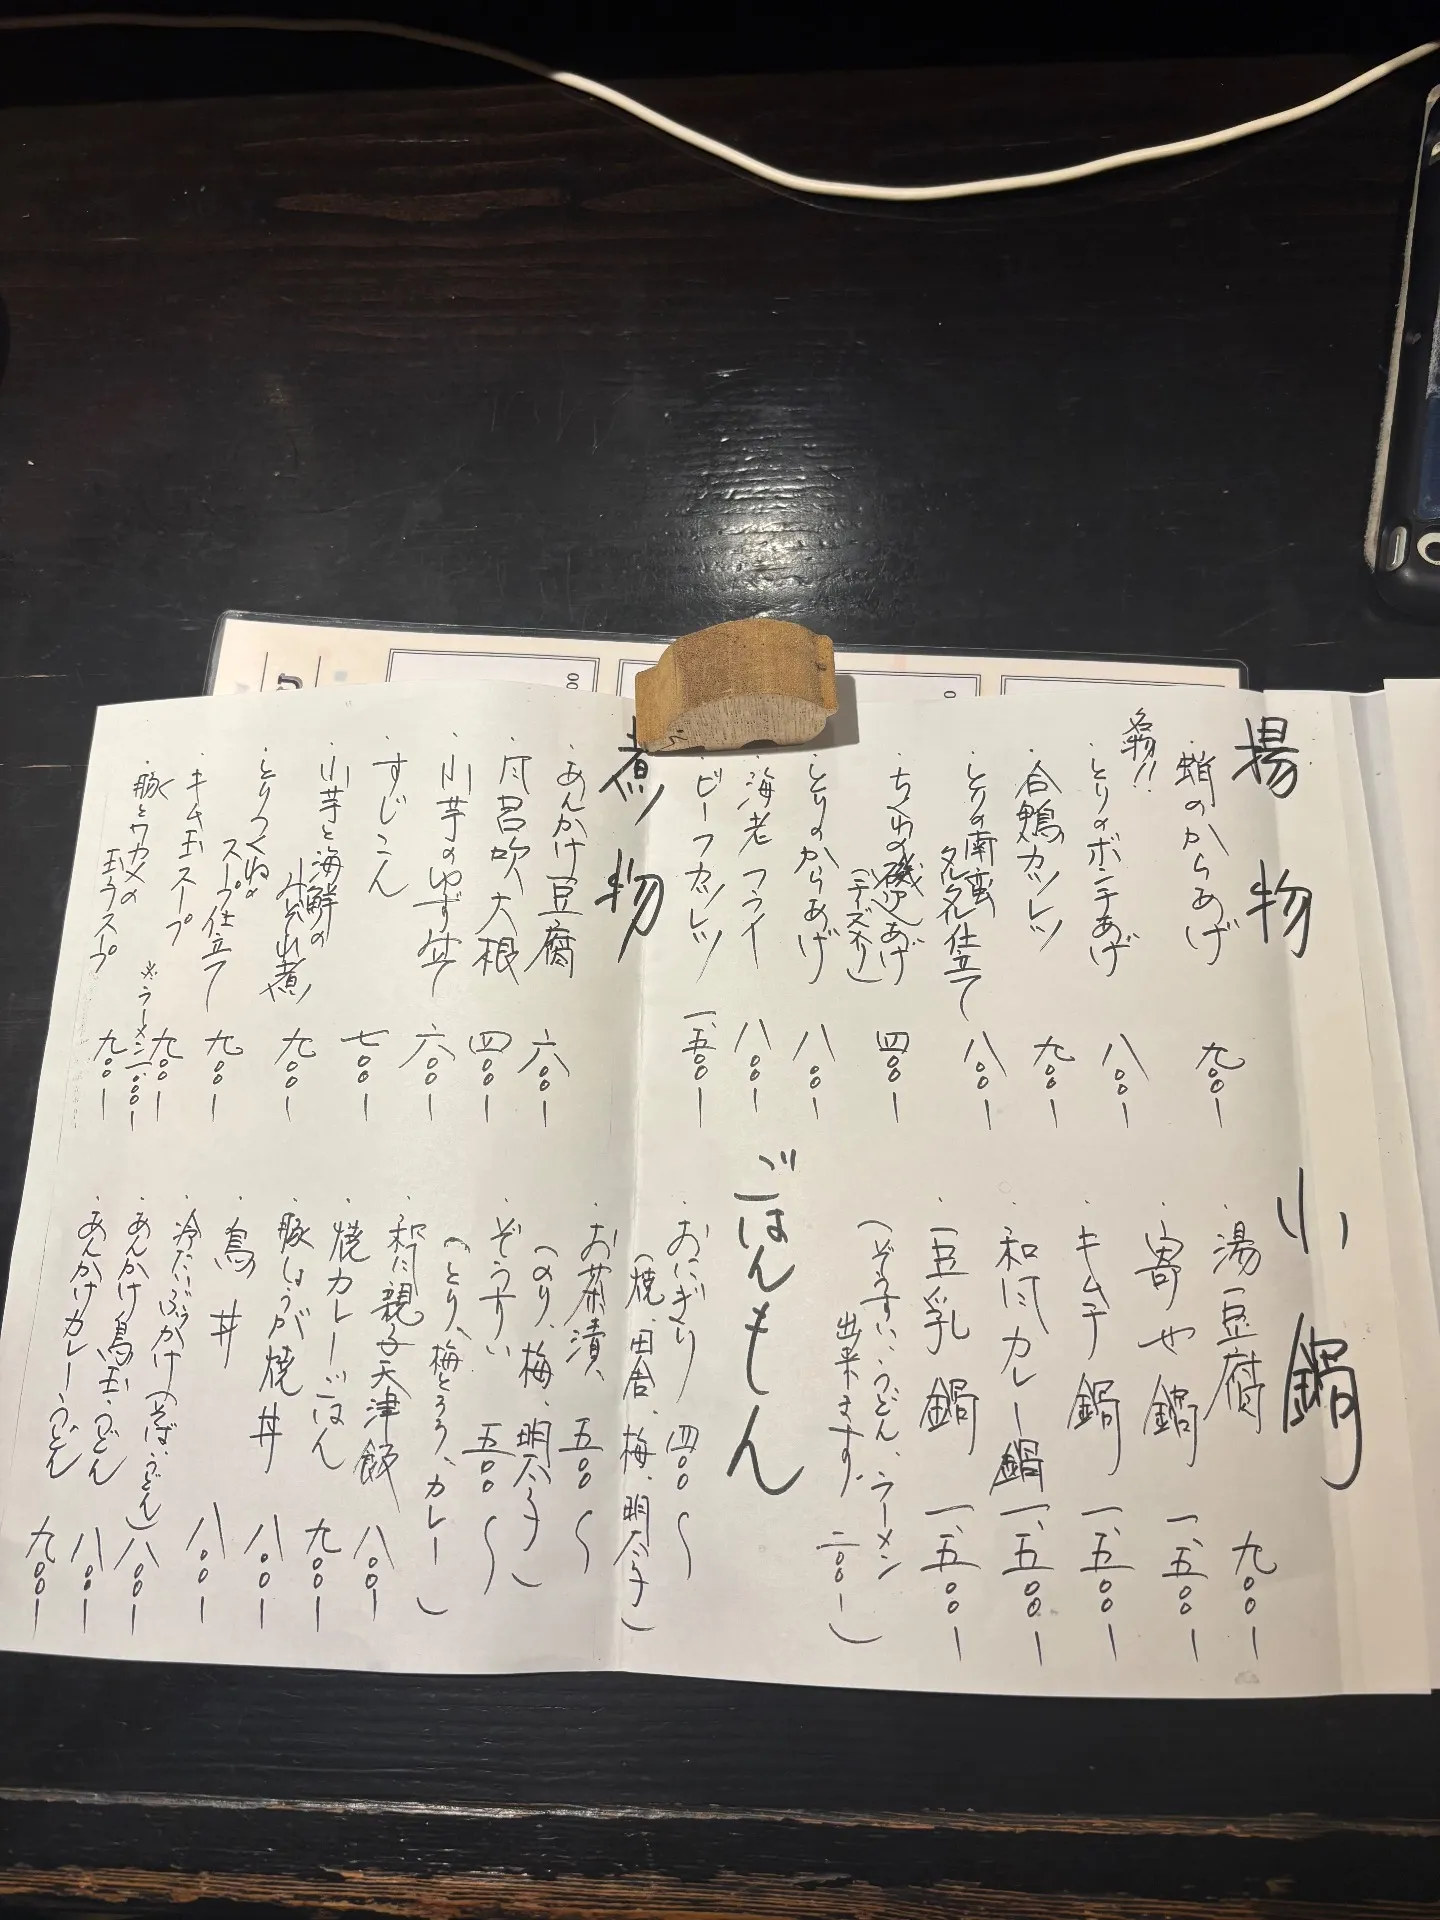 揚物
・蛸のからあげ 九〇〇ー
名物!!
・とりのポンチあげ 八〇〇ー
・合鴨のカツレツ 九〇〇ー
・とりの南蛮
タルタル仕立て 八〇〇ー
・ちくわの磯辺あげ
(チーズ入り) 四〇〇ー
・とりのからあげ 八〇〇ー
・海老フライ 八〇〇ー
・ビーフカツレツ 一、五〇〇ー
煮物
・あんかけ豆腐 六〇〇ー
・風呂吹大根 四〇〇ー
・小芋のゆず仕立て 六〇〇ー
・すじこん 七〇〇ー
・小芋と海鮮の
みぞれ煮 九〇〇ー
・とりつくねの
スープ仕立て 九〇〇ー
・キム玉スープ 九〇〇ー
※ラーメン一、〇〇〇ー
・豚とワカメの
玉ラスープ 九〇〇ー
小鍋
・湯豆腐 九〇〇ー
・寄せ鍋 一、五〇〇ー
・キムチ鍋 一、五〇〇ー
・和風カレー鍋 一、五〇〇ー
・豆乳鍋 一、五〇〇ー
(ぞうすい、うどん、ラーメン
出来ます。 二〇〇ー)
ごはんもん
・おにぎり 四〇〇〜
(焼、田舎、梅、明太子)
・お茶漬、 五〇〇〜
(のり、梅、明太子)
・ぞうすい 五〇〇〜
(とり、梅とろろ、カレー)
・和風親子天津飯 八〇〇ー
・焼カレーごはん 九〇〇ー
・豚しょうが焼丼 八〇〇ー
・鳥丼 八〇〇ー
・冷たいぶっかけ(そば、うどん) 八〇〇ー
・あんかけ鳥玉うどん 八〇〇ー
・あんかけカレーうどん 九〇〇ー